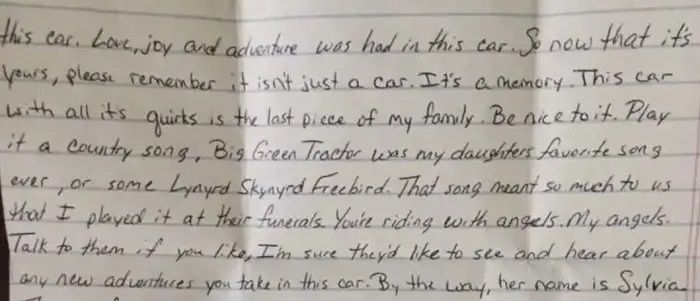 this car. Love, joy and adventure was had in this car. So now that it's
yours, please remember it isn't just a car. It's a memory. This car
with all it's quirks is the last piece of my family. Be nice to it. Play
it a country song, Big Green Tractor was my daughters favorite song
ever, or some Lynyrd Skynyrd Freebird. That song meant so much to us
that I played it at their funerals. You're riding with angels. My angels.
Talk to them if you like, I'm sure they'd like to see and hear about
any new adventures you take in this car. By the way, her name is Sylvia